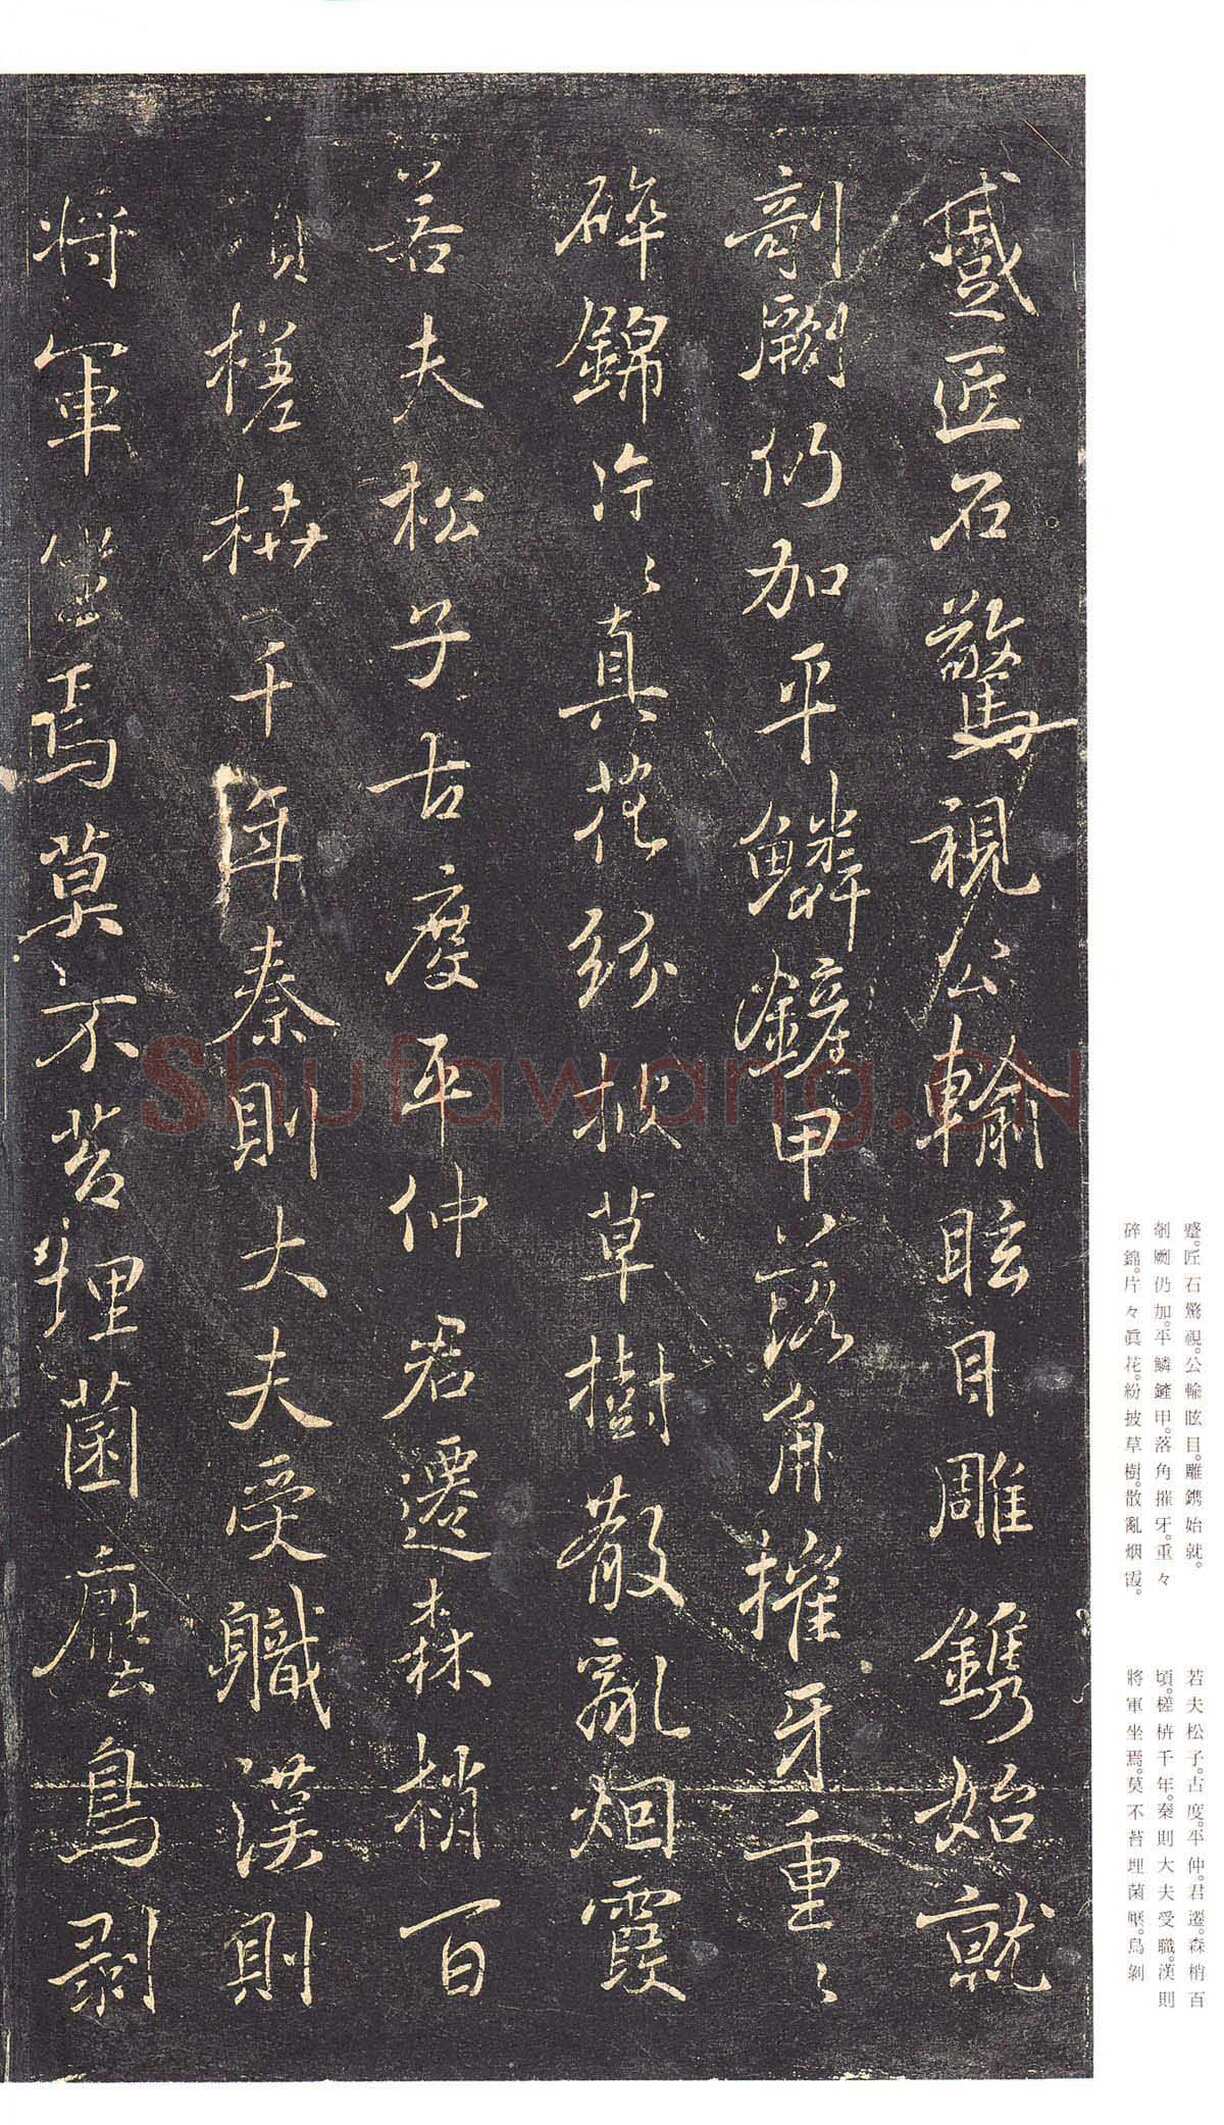 蹙匠石驚視公輸眩目雕鐫始就
剞劂仍加平鱗鏟甲落角摧牙重々
碎錦片々真花紛披草樹散亂烟霞
若夫松子古度平仲君遷森梢百
頃槎枿千年秦則大夫受職漢則
将軍坐焉莫不苔埋菌壓鳥剥
蹙。匠石驚視。公輸眩目。雕鐫始就。
剞劂仍加。平鱗鏟甲。落角摧牙。重々
碎錦。片々眞花。紛披草樹。散亂烟霞。
若夫松子。古度。平仲。君遷。森梢百
頃。槎枿千年。秦則大夫受職。漢則
將軍坐焉。莫不苔埋菌壓。鳥剝
Shufawang.CN